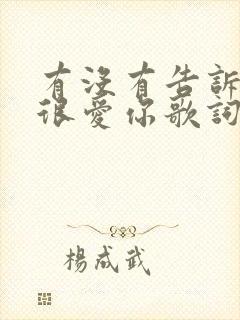 有沒有告訴
很愛你歌詞
楊成武